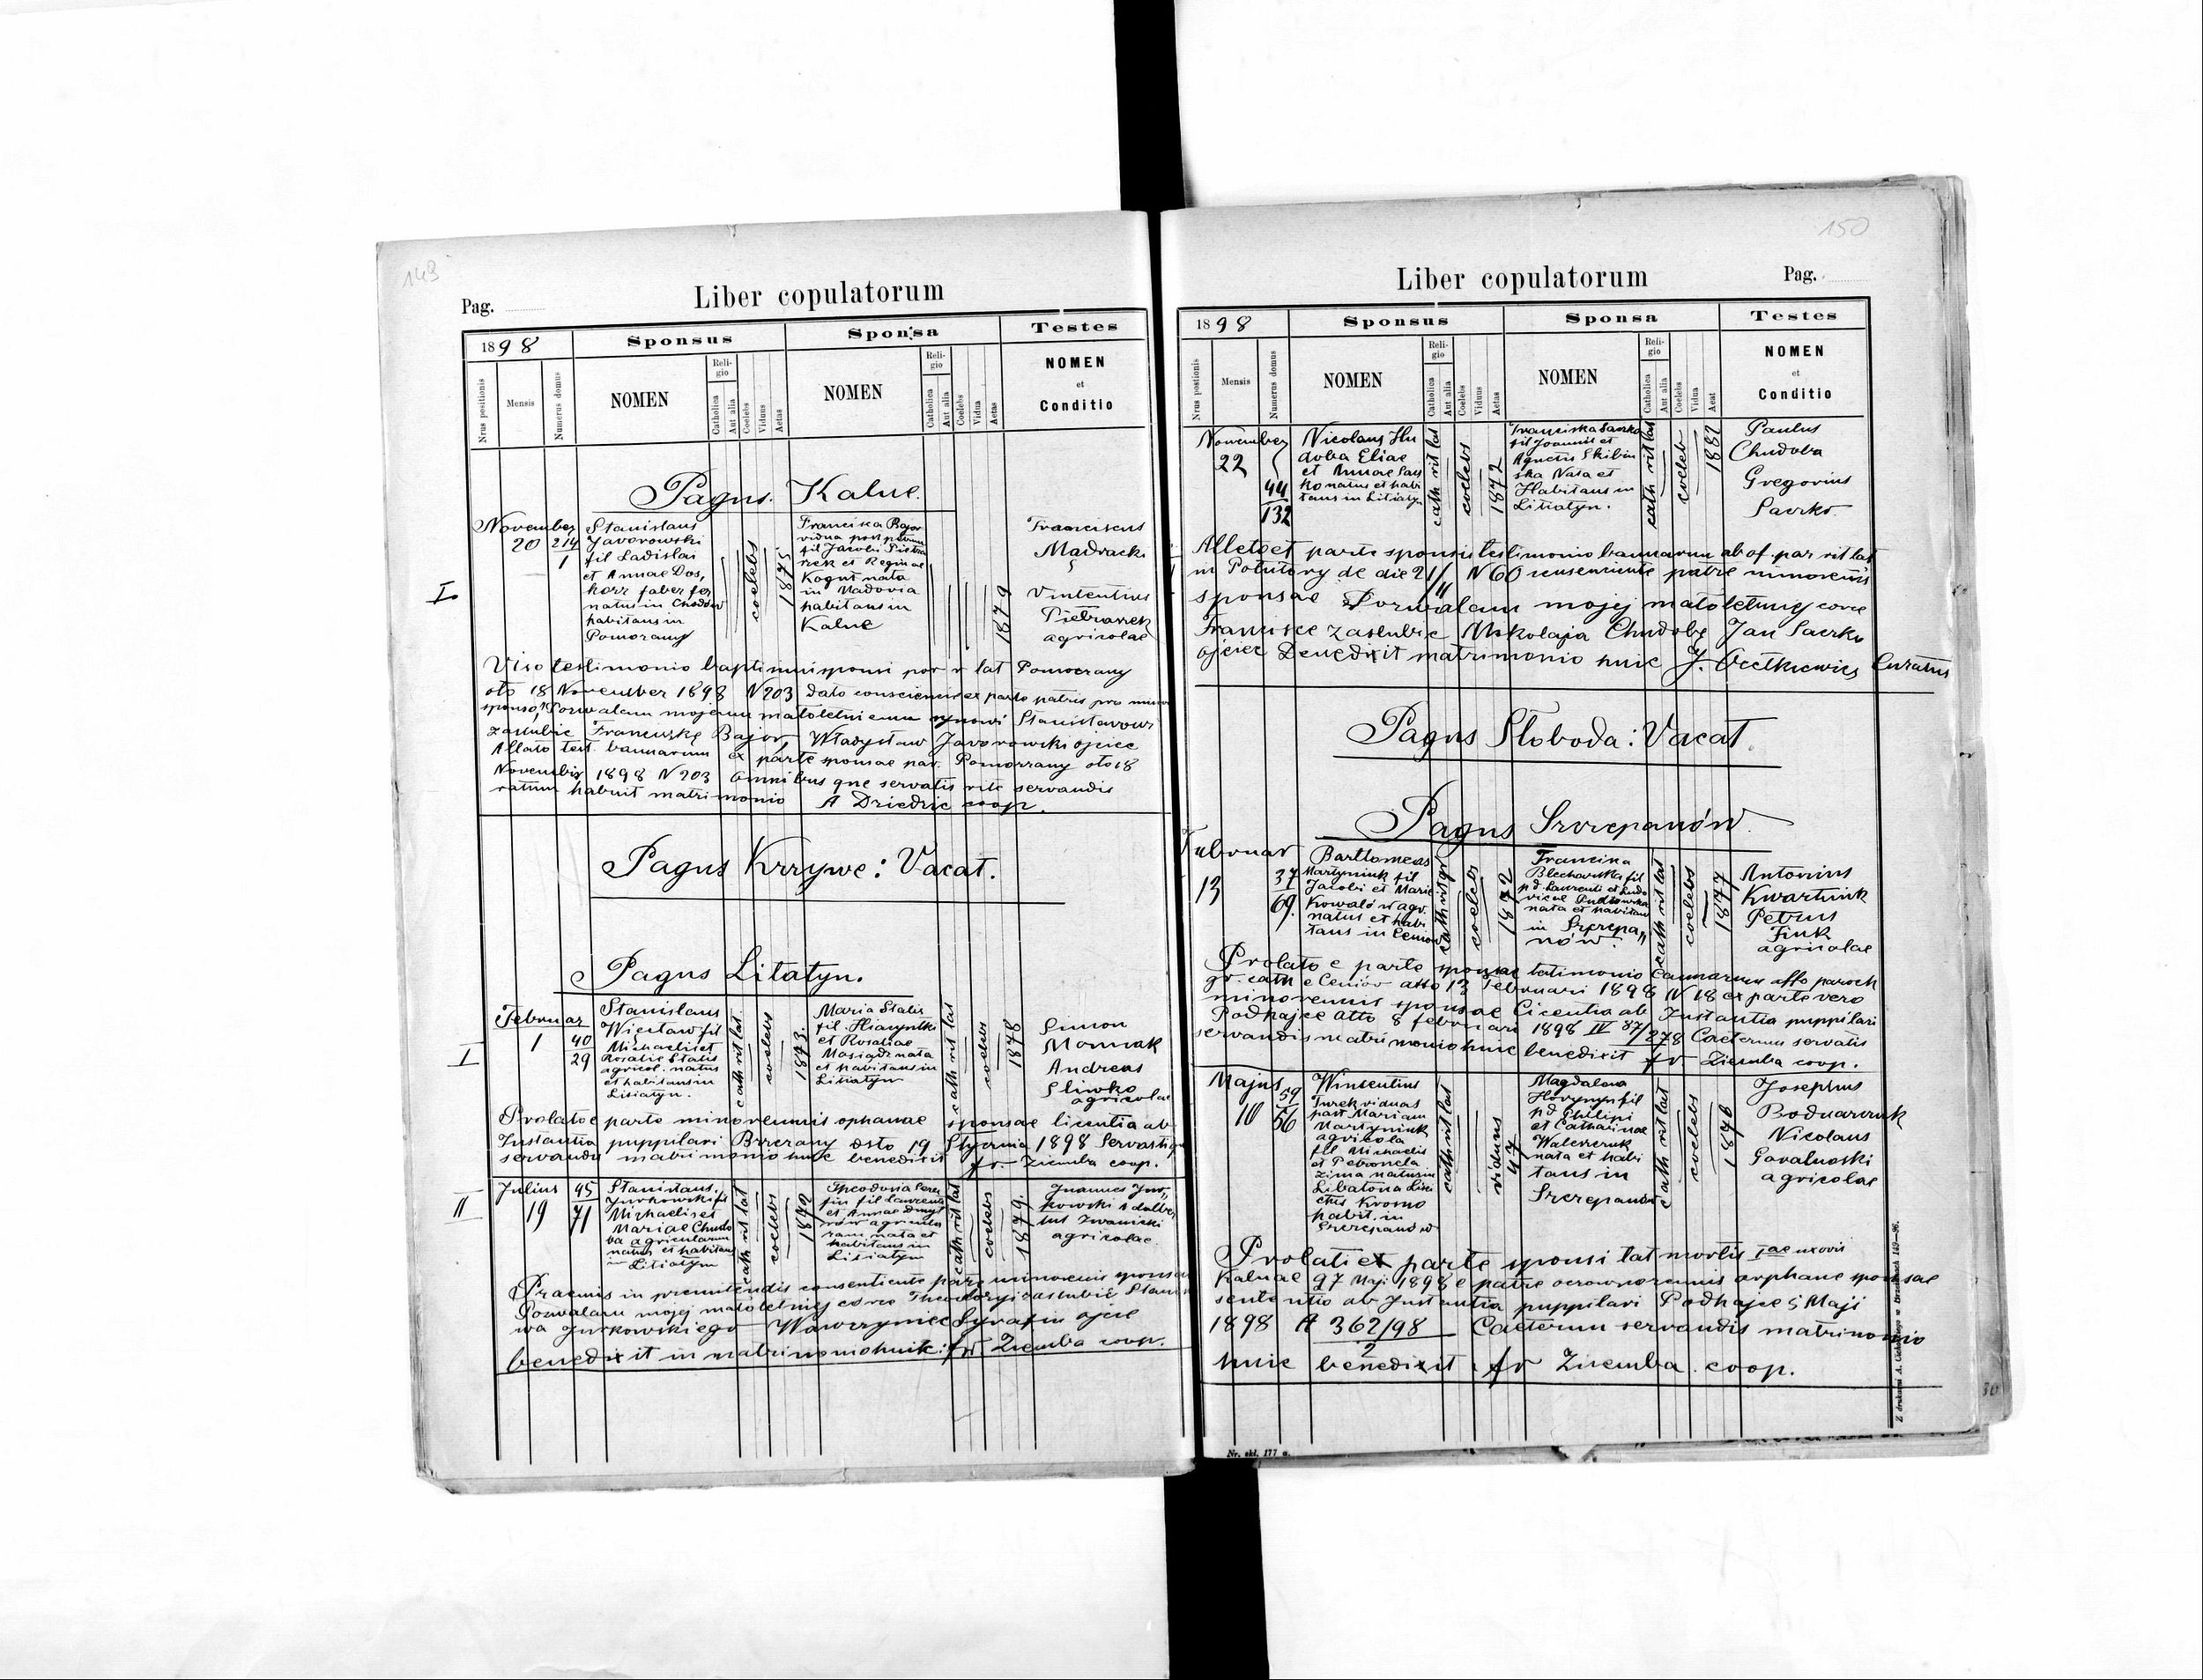 143
Pag.
Liber copulatorum
1898
Sponsus
Sponsa
Testes
Nrus positionis
Mensis
Numerus domus
NOMEN
Religio
Catholica
Aut alia
Coelebs
Viduus
Aetas
NOMEN
Religio
Catholica
Aut alia
Coelebs
Vidua
Aetas
NOMEN
et
Conditio
Pagus Kalne.
I
November
20
214
1
Stanislaus
Javorowski
fil Ladislai
et Annae Dos,
korz faber fer
natus in
habitans in
Pomorzany
coelebs
1875
Francisca Bajor
vidua post
fil Jacobi
et Reginae
Kogut nata
in Madovia
habitans in
Kalne
1879
Franciscus
Madracki
Vintentius
Pietranek
agricolae
Viso testimonio baptismi sponsi par r lat Pomorzany
dto 18 November 1898 N 203 dato ex parte patris pro
sponso, Pozwalam mojemu małoletniemu synowi Stanisławowi
zaslubic Franciszkę Bajor, Władysław Javorowski ojciec
Allato test. bannorum ex parte sponsae par. Pomorzany dto 18
Novembris 1898 N 203 Omnibus que servatis rite servandis
ratum habuit matrimonio A Driedzic coop.
Pagus Krzywe: Vacat.
Pagus Litatyn.
I
Februar
1
40
29
Stanislaus
Wiesław fil
Michaelis et
Rosalie Stalis
agricol. natus
et habitans in
Litiatyn.
cath rit lat
coelebs
1873.
Maria Stalis
fil. Hiacynthi
et Rosaliae
Masiądz nata
et habitans in
Litiatyn
cath rit lat
coelebs
1878
Simon
Moniak
Andreas
Sliwko
agricolae
Prolato e parte minorennis ophanae sponsae licentia ab
Instantia puppilari Brzezany dsto 19 Stycznia 1898 Servatisque
servandis matrimonio huic benedixit fr. Ziemba coop.
II
Julius
19
45
71
Stanislaus
Jurkowski fil
Michaelis et
Mariae Chudo
ba agricolarum
natus et habitans
in Litiatyn
cath rit lat
coelebs
1872
Theodoria Sera
fin fil Laurentii
et Annae Dmyt
rów agricola
rum nata et
habitans in
Litiatyn
cath rit lat
coelebs
1879.
Joannes Jur,,
kowski Adalber
tus Iwanicki
agricolae
Praemis in premitendis consentiente patre minorenis sponsae
Pozwalam mojej małoletniej córce Theodoryi zaslubić Stanis
wa Jurkowskiego Wawrzyniec Syrafin ojciec
benedixit in matrimonio huic: fr. Ziemba coop.
150
Liber copulatorum
Pag.
1898
Sponsus
Sponsa
Testes
Nrus positionis
Mensis
Numerus domus
NOMEN
Religio
Catholica
Aut alia
Coelebs
Viduus
Aetas
NOMEN
Religio
Catholica
Aut alia
Coelebs
Vidua
Aeat
NOMEN
et
Conditio
November
22
44
132
Nicolaus Hu
doba Eliae
et Annae Sac
ko natus et habi
tans in Litiatyn
cath rit lat
coelebs
1872
Franciska Saczko
fil Joannis et
Agnetis Skibin
ska Nata et
Habitans in
Litiatyn.
cath rit lat
coeleb
1882
Paulus
Chudoba
Gregorius
Saczko
Alleto et parte sponsi testimonio bannorum ab of. par rit lat
in Potutory de die 21/11 N 60 consenciente patre minorenis
sponsae Pozwalam mojej małoletniej corce
Francisce zaslubic Mikolaja Chudobę Jan Saczko
ojciec Benedixit matrimonio huic J. Curatus
Pagus Słoboda: Vacat.
Pagus Szczepanów.
Februar
13
37
69.
Bartlomeus
Martyniuk fil
Jacobi et Marie
Kowalów agr.
natus et habi
tans in Ceniow
cath rit gr
coelebs
1872
Francisca
Blechavska fil
pd. Laurenti et Ludo
vicae Pudłowska
nata et habitans
in Szczepa,,
nów.
cath rit lat
coelebs
1877
Antonius
Kwartiuk
Petrus
Fiuk
agricolae
Prolato e parte sponsae testimonio bannorum offo paroch
gr. cath e Ceniów atto 13 Februari 1898 N 18 ex parte vero
minorennis sponsae Licentia ab Instantia puppilari
Podhajce atto 8 februari 1898 IV 87/278 Caeterum servatis
servandis matrimonio huic benedixit fr Ziemba coop.
Majus
10
59
56
Winsentius
Turek viduus
post. Mariam
Martyniuk
agricola
fil Michaelis
et Petronela
Zima natus in
Libatona Lisi
ctus Krosno
habit. in
Szczepanów
cath rit lat
viduus
47
Magdalena
Horynyn fil
pd Philipi
et Catharinae
Walcszcuk
nata et habi
tans in
Szczepanów
cath rit lat
coelebs
1876
Josephus
Bodnarczuk
Nicolaus
Gavalnoski
agricolae
Prolati ex parte sponsi tat mortis Iae uxoris
Kalnae 27 Maji 1898 e patre orphane sponsae
sententio ab Instantia puppilari Podhajce 5 Maji
1898 A 362/98 Caeterum servandis matrimonio
2
huic benedixit fr Ziemba. coop.
Nr. skł. 177 a.
Z drukarni A. Cichockiego w Brzeżanach 149—96.
30